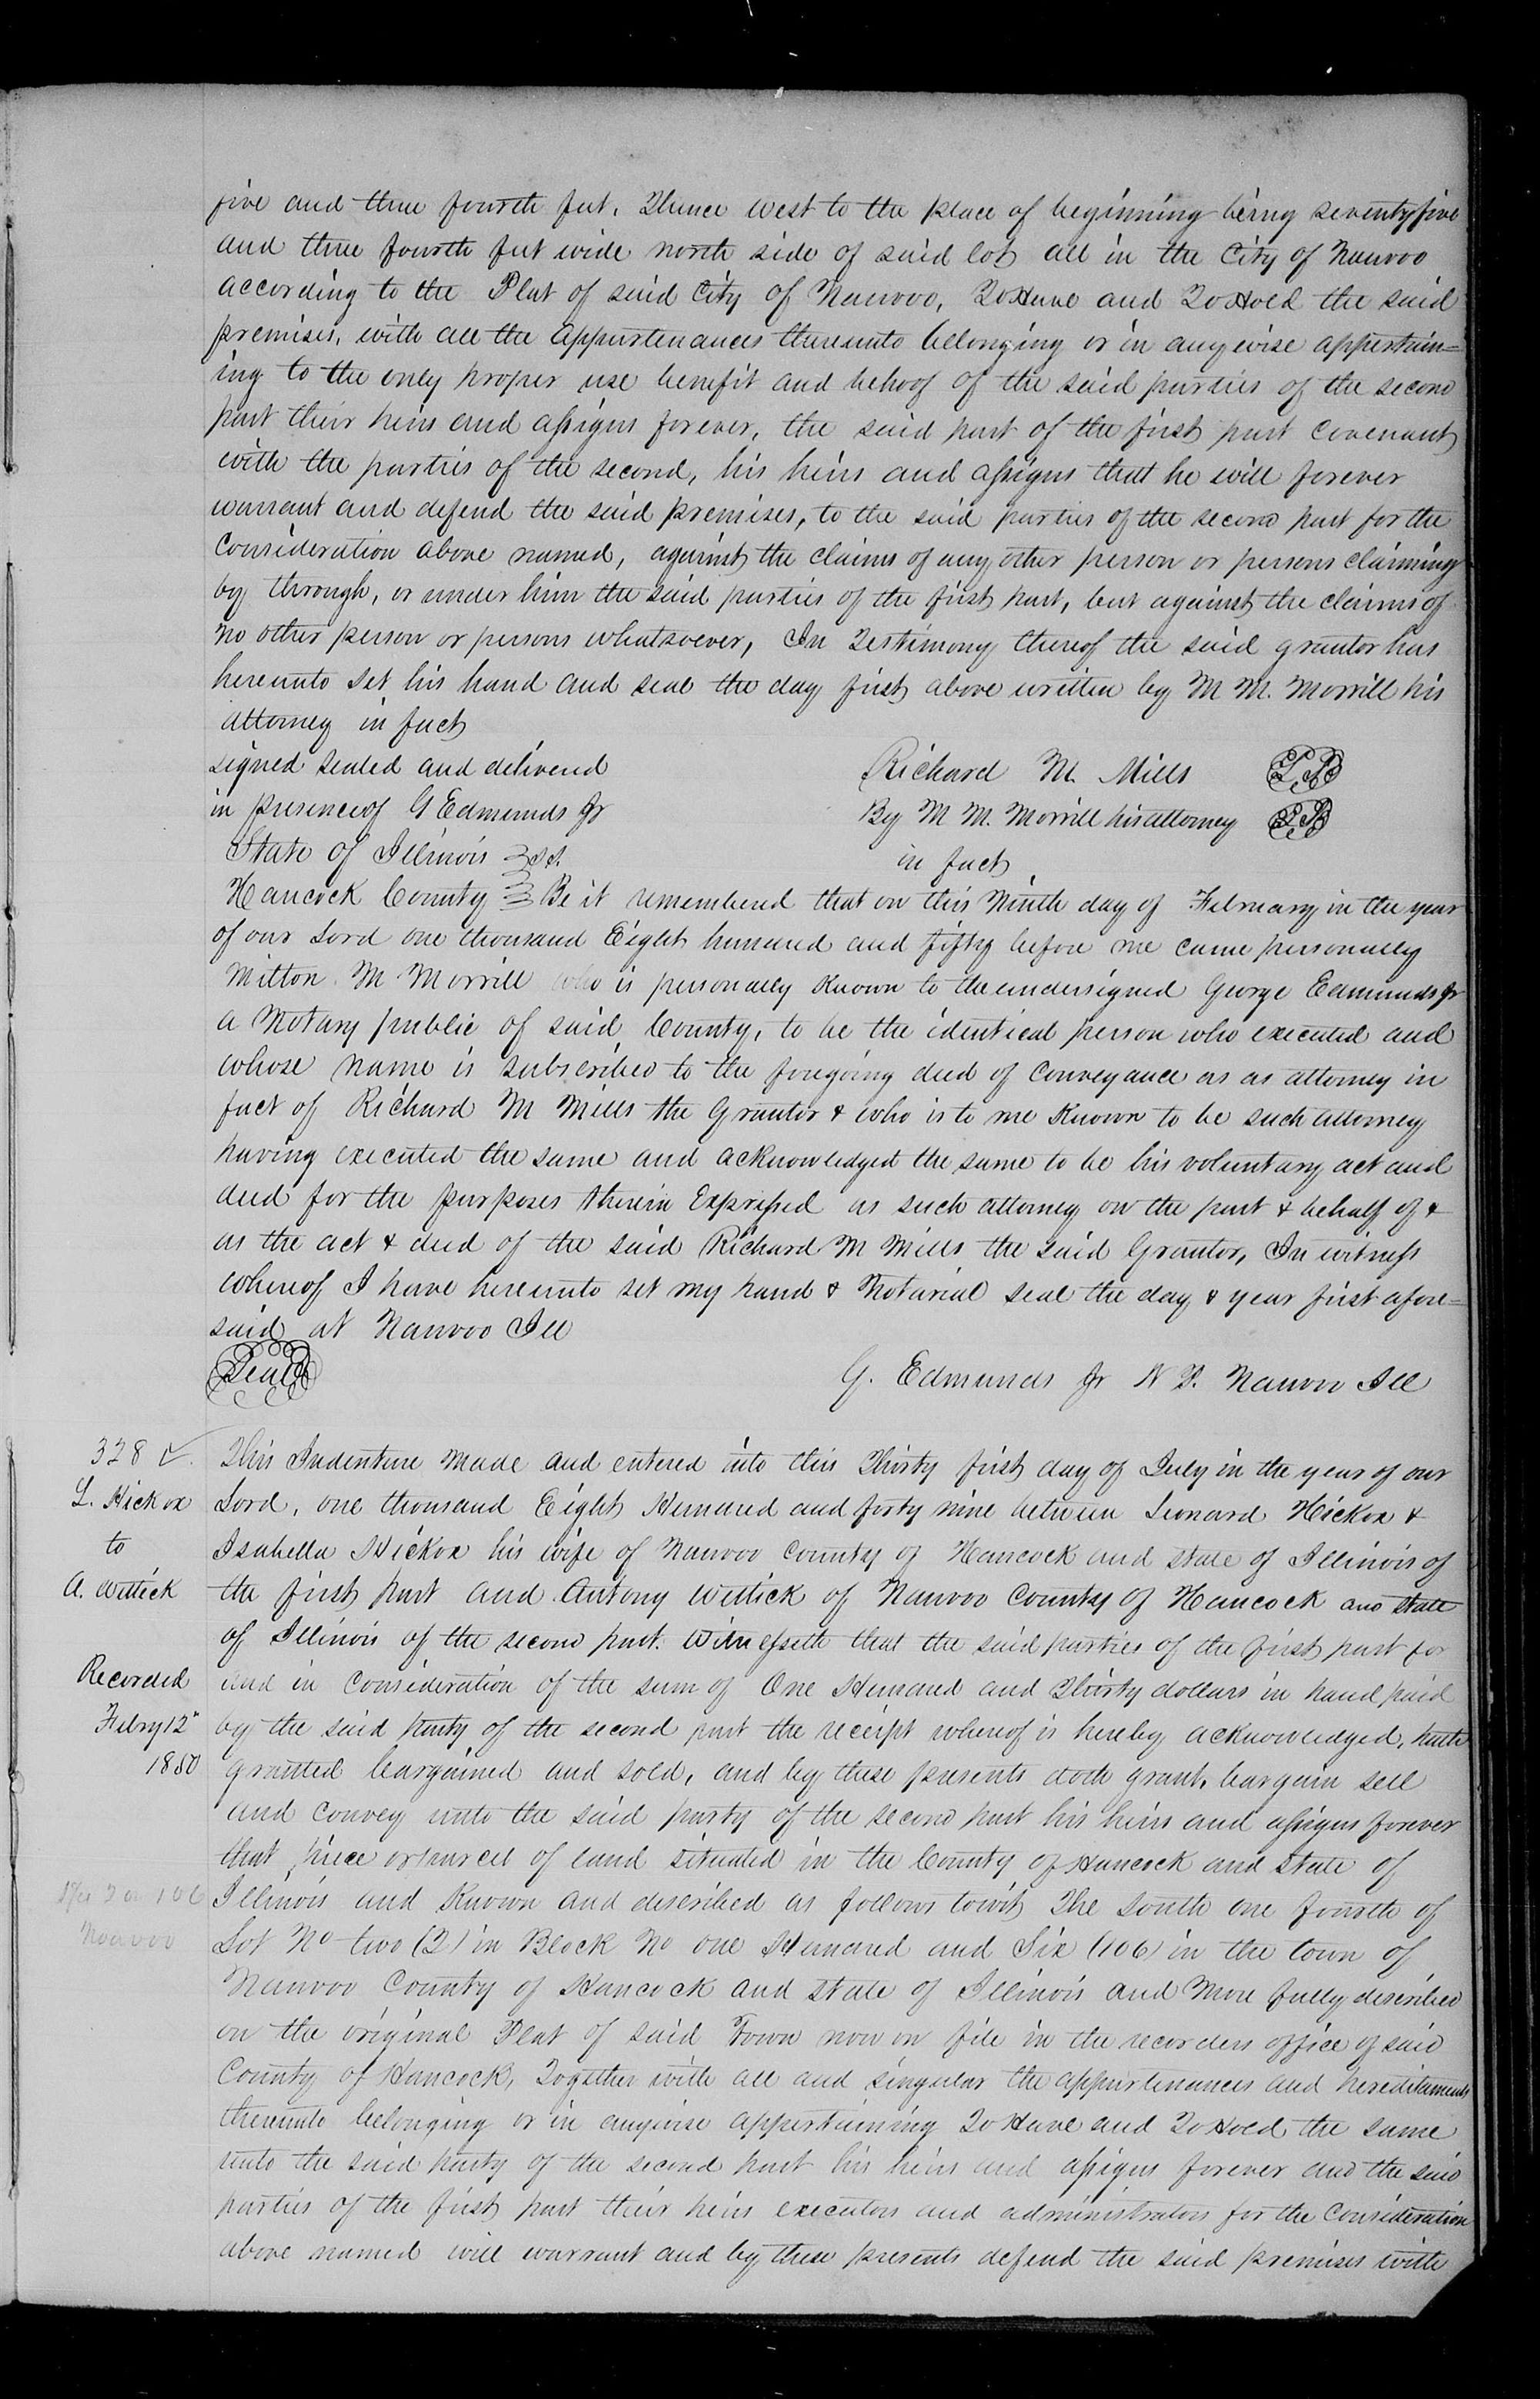 five and three fourth feet. Thence west to the place of beginning being seventy five
and three fourth feet wide north side of said lot all in the City of Nauvoo
according to the Plat of said City of Nauvoo, To Have and To Hold the said
premises, with all the appurtenances thereunto belonging or in anywise appertain=
ing to the only proper use benefit and behoof of the said parties of the second
part their heirs and assigns forever, the said part of the first part covenants
with the parties of the second, his heirs and assigns that he will forever
warrant and defend the said premises, to the said parties of the second part for the
consideration above named, against the claims of any other person or persons claiming
by through, or under him the said parties of the first part, but against the claims of
no other person or persons whatsoever, In Testimony thereof the said grantor has
hereunto set his hand and seal the day first above written by M M. Morrill his
attorney in fact
signed sealed and delivered Richard M. Mills LS
in presence of G Edmunds Jr By M M. Morrill his attorney LS
State of Illinois } ss. in fact
Hancock County } Be it remembered that on this Ninth day of February in the year
of our Lord one thousand Eight hundred and fifty before me came personally
Milton M Morrill who is personally known to the undersigned George Edmunds Jr
a Notary public of said County, to be the identical person who executed and
whose name is subscribed to the foregoing deed of conveyance as as attorney in
fact of Richard M Mills the Grantor & who is to me known to be such attorney
having executed the same and acknowledged the same to be his voluntary act and
deed for the purposes therein Expressed as such attorney on the part & behalf of &
as the act & deed of the said Richard M Mills the said Grantor, In witness
whereof I have hereunto set my hand & Notarial seal the day & year first afore=
said at Nauvoo Ill
Seal G. Edmunds Jr N P. Nauvoo Ill
328
L. Hickox
to
A. Wettick
Recorded
Febry 12"
1850
2 106
Nauvoo
This Indenture made and entered into this Thirty first day of July in the year of our
Lord, one thousand Eight Hundred and forty nine between Leonard Hickox &
Isabella Hickox his wife of Nauvoo County of Hancock and state of Illinois of
the first part and Antony Wettick of Nauvoo County of Hancock and state
of Illinois of the second part. Witnesseth that the said parties of the first part for
and in consideration of the sum of One Hundred and Thirty dollars in hand paid
by the said party of the second part the receipt whereof is hereby acknowledged, hath
granted bargained and sold, and by these presents doth grant, bargain sell
and convey unto the said party of the second part his heirs and assigns forever
that piece or parcel of land situated in the County of Hancock and State of
Illinois and known and described as follows towit, The south one fourth of
Lot No two (2) in Block No one Hundred and Six (106) in the town of
Nauvoo County of Hancock and State of Illinois and more fully described
on the original Plat of said Town now on file in the recorders office of said
County of Hancock, Together with all and singular the appurtenances and hereditaments
thereunto belonging or in anywise appertaining To Have and To Hold the same
unto the said party of the second part his heirs and assigns forever and the said
parties of the first part their heirs executors and administrators for the consideration
above named will warrant and by these presents defend the said premises with